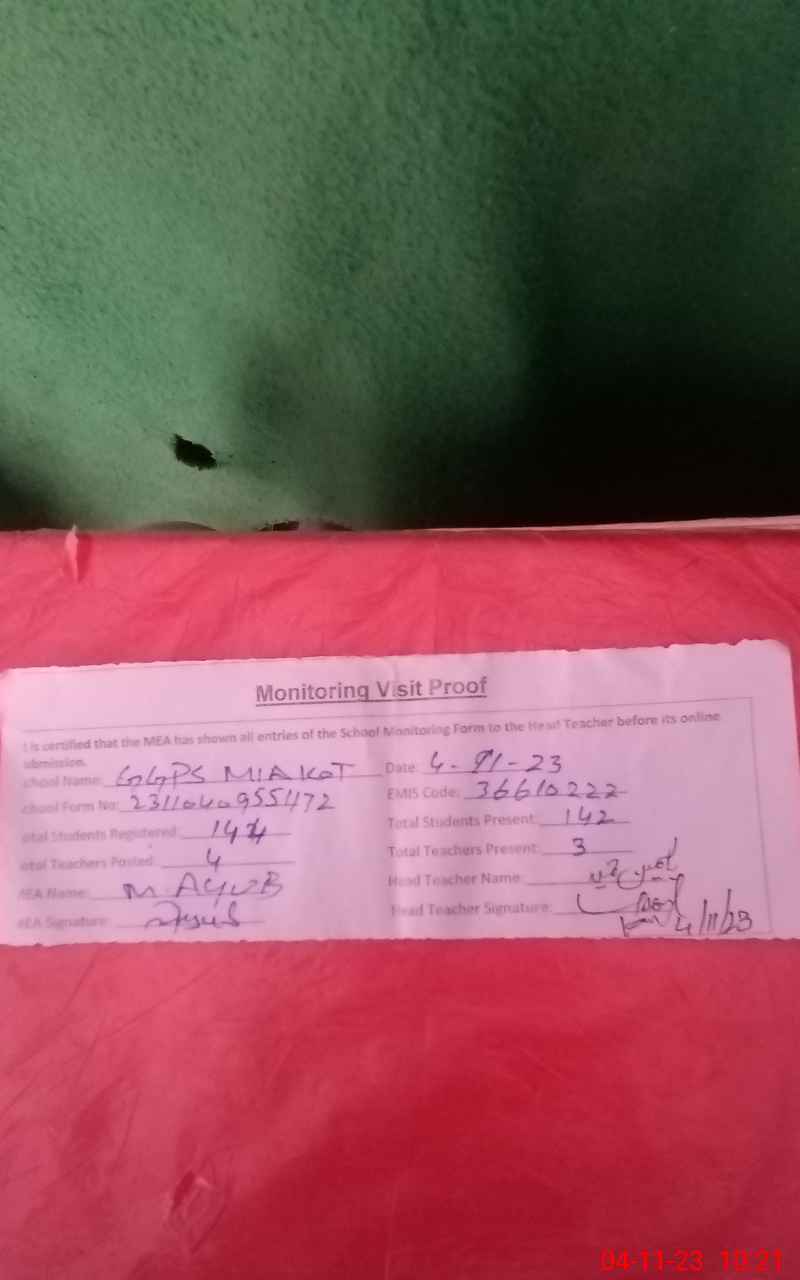 Monitoring Visit Proof
t is certified that the MEA has shown all entries of the School Monitoring Form to the Head Teacher before its online
ubmission.
chool Name: GGPS MIAKOT Date: 4-11-23
chool Form No: 2311040955472 EMIS Code: 36610222
otal Students Registered: 144 Total Students Present: 142
otal Teachers Posted: 4 Total Teachers Present: 3
MEA Name: M AYUB Head Teacher Name:
MEA Signature: Ayub Head Teacher Signature: 4/11/23
04-11-23 10:21